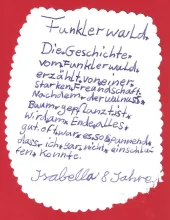 Funklerwald.
Die Geschichte
vom Funklerwald
erzählt von einer
starken Freundschaft
Nachdem der Walnuss
Baum gepflanzt ist
Wird am Ende alles
gut. oft war es so spannend
dass ich gar nicht einschla
fen konnte.
Isabella 8 Jahre